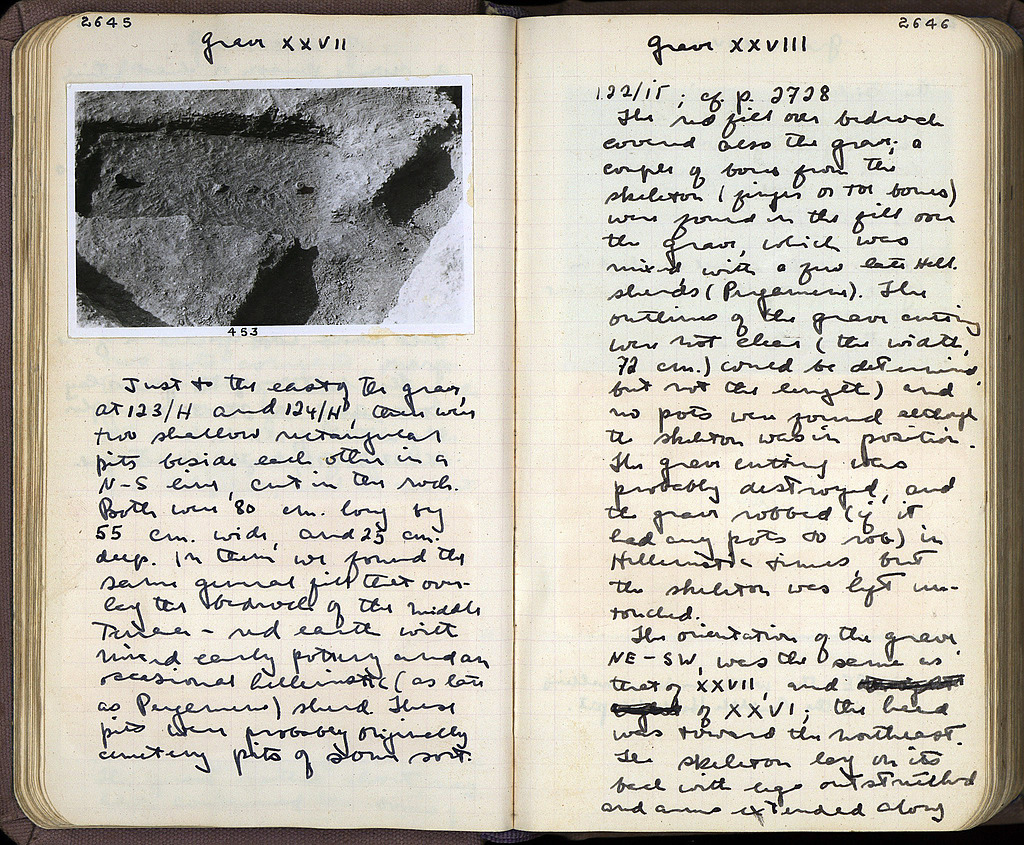 2645
Grave XXVII
453
Just to the east of the grave,
at 123/H and 124/H, there were
two shallow rectangular
pits beside each other in a
N-S line, cut in the rock.
Both were 80 cm. long by
55 cm. wide, and 25 cm.
deep. In them we found the
same general fill that over-
lay the bedrock of the middle
Terrace - red earth with
mixed early pottery and an
occasional hellenistic (as late
as Pergamene) sherd. These
pits were probably originally
cemetery pits of some sort.
2646
Grave XXVIII
122/I5 ; cf. p. 2728
The red fill over bedrock
covered also the grave; a
couple of bones from the
skeleton (finger or toe bones)
were found in the fill over
the grave, which was
mixed with a few late Hell.
sherds (Pergamene). The
outlines of the grave cutting
were not clear (the width,
72 cm.) could be determined,
but not the length) and
no pots were found although
the skeleton was in position.
The grave cutting was
probably destroyed, and
the grave robbed (if it
had any pots to rob) in
Hellenistic times, but
the skeleton was left un-
touched.
The orientation of the grave,
NE-SW, was the same as
that of XXVII, and
of XXVI; the head
was toward the northeast.
The skeleton lay on its
back with legs outstretched
and arms extended along